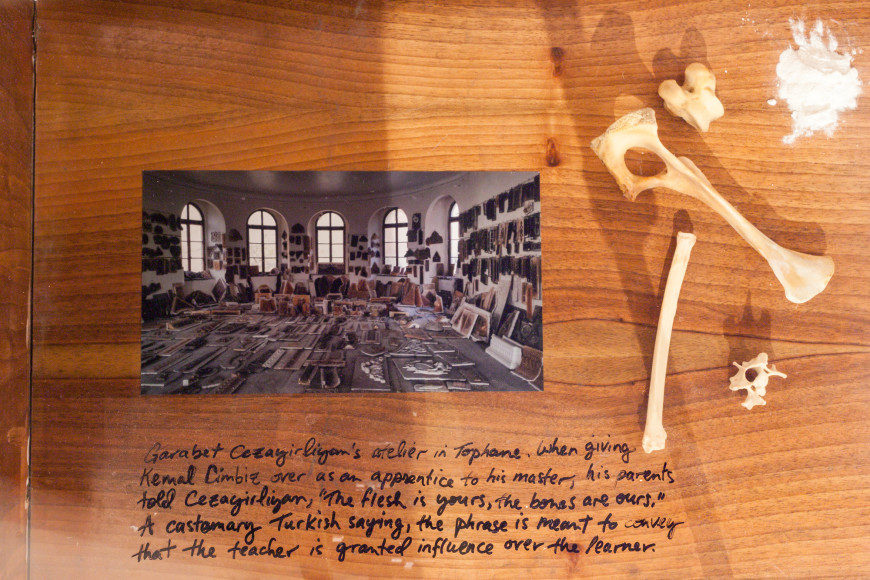 Garabet Cezayirliyan's atelier in Tophane. When giving
Kemal Cimbiz over as an apprentice to his master, his parents
told Cezayirliyan, "The flesh is yours, the bones are ours."
A customary Turkish saying, the phrase is meant to convey
that the teacher is granted influence over the learner.